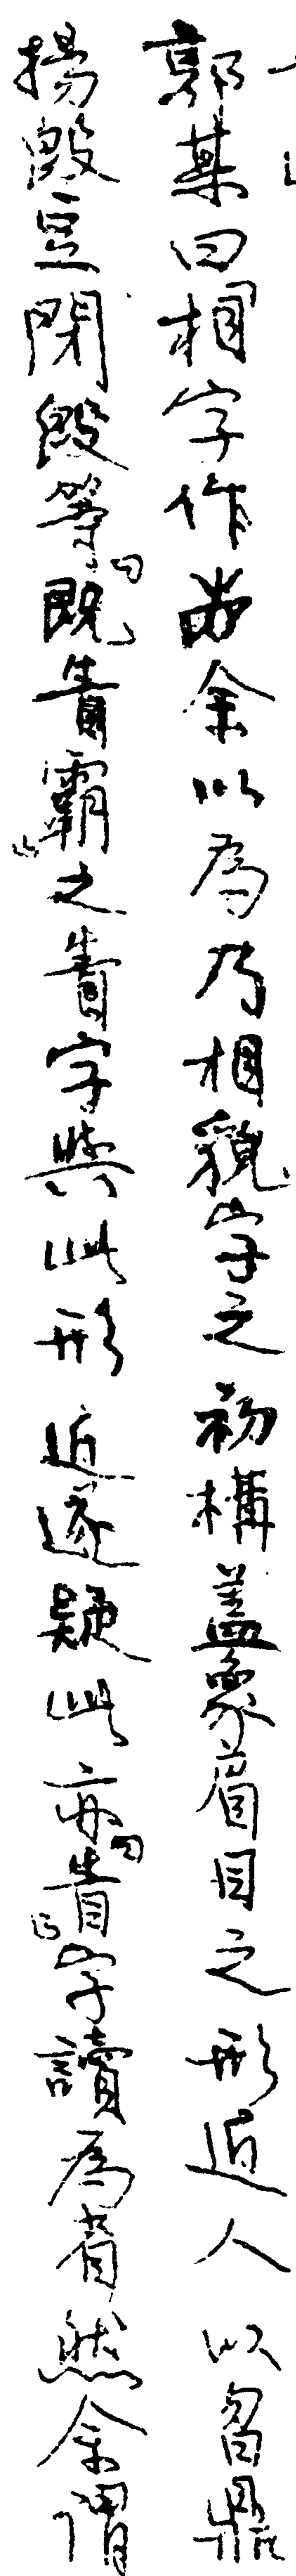 郭某曰「相」字作𦭝余以為乃相貌字之初構蓋象眉目之形近人以曶鼎
揚𣪘豆閉𣪘等「既眚霸」之眚字與此形近遂疑此亦「眚」字讀為省然余謂